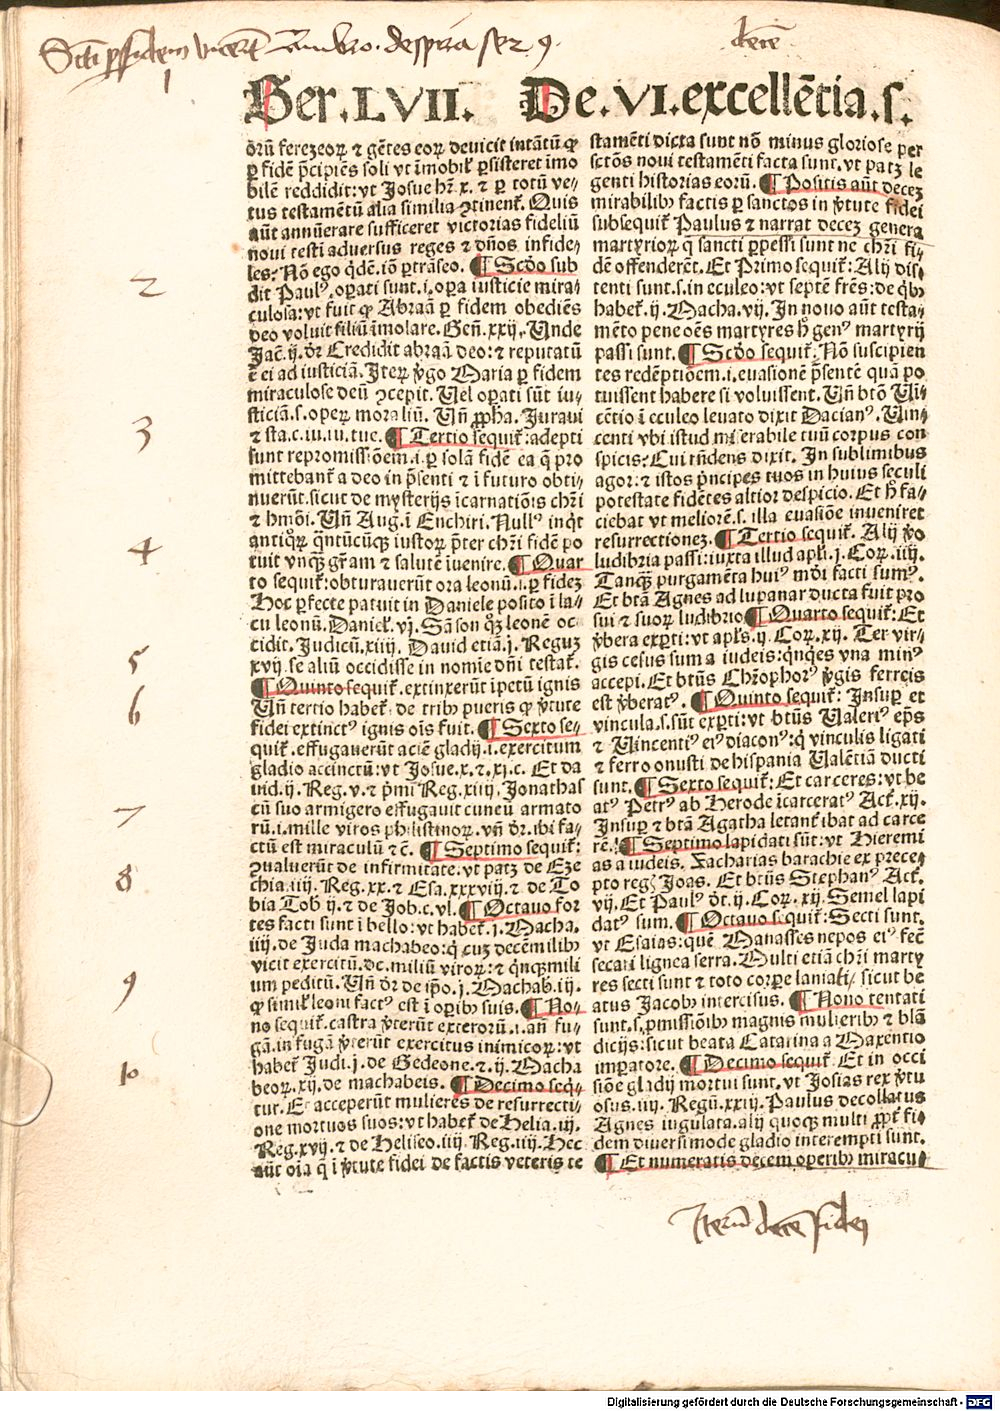 Sctī ꝑ fidem vicerūt Ambro. de spirā ser. 9.
decē
1
Ser.LVII. De.VI.excellētia.s.
2
3
4
5
6
7
8
9
10
ōrū ferezeoꝝ ⁊ gētes eoꝝ deuicit intātū ꝙ
ꝑ fidē p̄cipiēs soli vt īmobiľ ꝑsisteret īmo
bilē reddidit: vt Josue hr̄.x. ⁊ ꝑ totū ve⸗
tus testamētū alia similia ꝯtinenť. Quis
aūt annūerare sufficeret victorias fideliū
noui testī aduersus reges ⁊ dn̄os infide⸗
les: Nō ego qͥdē. iō ꝑtrāseo. ¶ Scďo sub
dit Paulꝰ. oꝑati sunt.i. oꝑa iusticie mira⸗
culosa: vt fuit ꝙ Abraā ꝑ fidem obediēs
deo voluit filiū īmolare. Geñ.xxij. Unde
Jaē.ij. dr̄ Credidit abraā deo: ⁊ reputatū
ē ei ad iusticiā. Iteꝝ v̄go Maria ꝑ fidem
miraculose deū ꝯcepit. Uel oꝑati sūt iu⸗
sticiā.s. opeꝝ moraliū. Uñ ꝓpha. Juraui
⁊ sta.c.iu.iu.tue. ¶ Tertio sequiť: adepti
sunt repromissiōem.i. ꝑ solā fidē ea q̄ pro
mittebanť a deo in p̄senti ⁊ ī futuro obti⸗
nuerūt. sicut de mysterijs īcarnatiōis chr̄i
⁊ hmōi. Uñ Aug. ī Enchiri. Nullꝰ inqͥt
antiqͦꝝ qͣntūcūqꝫ iustoꝝ p̄ter chr̄i fidē po
tuit vnqͣꝫ gr̄am ⁊ salutē īuenire. ¶ Quar
to sequiť: obturauerūt ora leonū.i. ꝑ fidez
Hoc ꝑfecte patuit in Daniele posito ī la⸗
cu leonū. Danieľ.vj. Sāson qͦꝫ leonē oc⸗
cidit. Judicū.xiiij. Dauid etiā.j. Reguꝫ
xvij. se aliū occidisse in nomīe dn̄i testať.
¶ Quinto sequiť. extinxerūt īpetū ignis
Uñ tertio habeť. de tribꝰ pueris ꝙ v̄tute
fidei extinctꝰ ignis oīs fuit. ¶ Sexto se⸗
quiť. effugauerūt aciē gladij.i. exercitum
gladio accinctū: vt Josue.x. ⁊.xj.c. Et da
uid.ij. Reg.v. ⁊ pͥmi Reg.xiiij. Jonathas
cū suo armigero effugauit cuneū armato
rū.i. mille viros philistinoꝝ. vñ dr̄. ibi fa⸗
ctū est miraculū ⁊ c̄. ¶ Septimo sequiť:
ꝯualuerūt de infirmitate: vt patꝫ de Eze
chia.iiij. Reg.xx. ⁊ Esa.xxxviij. ⁊ de To
bia Tob.ij. ⁊ de Job.c.vl. ¶ Octauo for
tes facti sunt ī bello: vt habeť.j. Macha.
iiij. de Juda machabeo: qͥ cuꝫ decēmilibꝰ
vicit exercitū. dc. miliū viroꝝ: ⁊ qͥnqꝫmili
um peditū. Uñ dr̄ de ip̄o.j. Machab.iij.
ꝙ similꝰ leoni factꝰ est ī oꝑibꝰ suis. ¶ No⸗
no sequiť. castra v̄terūt exteroꝝ.i. an̄ fu⸗
gā. in fugā v̄terūt exercitus inimicoꝝ: vt
habeť Judi.j. de Gedeone. ⁊.ij. Macha
beoꝝ.xij. de machabeis. ¶ Decimo seqͥ⸗
tur. Et acceperūt mulieres de resurrecti⸗
one mortuos suos: vt habeť de Helia.iij.
Reg.xvij. ⁊ de Heliseo.iiij. Reg.iiij. Hec
aūt oīa q̄ ī v̄tute fidei de factis veteris te
stamēti dicta sunt nō minus gloriose per
sctōs noui testamēti facta sunt. vt patꝫ le
genti historias eorū. ¶ Positis aūt decez
mirabilibꝰ factis ꝑ sanctos in v̄tute fidei
subsequiť Paulus ⁊ narrat decez genera
martyrioꝝ q̄ sancti ꝑpessi sunt ne chr̄i fi⸗
dē offenderēt. Et Primo sequiť: Alij dis⸗
tenti sunt.s. in eculeo: vt septē fr̄es: de qͥbꝰ
habeť.ij. Macha.vij. In nouo aūt testa⸗
mēto pene oēs martyres h̄ genꝰ martyrij
passi sunt. ¶ Scďo sequiť. Nō suscipien
tes redēptiōem.i. euasionē p̄sentē quā po
tuissent habere si voluissent. Uñ btō Uīn⸗
cētio ī eculeo leuato dixit Dacianꝰ. Uin⸗
centi vbi istud miserabile tuū corpus con
spicis: Cui rn̄dens dixit. In sublimibus
agor: ⁊ istos pͥncipes tuos in huius seculi
potestate fidētes altior despicio. Et h̄ fa⸗
ciebat vt meliorē.s. illa euasiōe inueniret
resurrectionez. ¶ Tertio sequiť. Alij v̄o
ludibria passi: iuxta illud apľi.j. Coꝝ.iiij.
Tanqͣꝫ purgamēta huiꝰ mūdi facti sumꝰ.
Et btā Agnes ad lupanar ducta fuit pro
sui ⁊ suoꝝ ludibrio. ¶ Quarto sequiť: Et
v̄bera exꝑti: vt apľs.ij. Coꝝ.xij. Ter vir⸗
gis cesus sum a iudeis: qͥnqͥes vna minꝰ
accepi. Et btūs Chr̄ophorꝰ v̄gis ferreis
est v̄beratꝰ. ¶ Quinto sequiť: Insuꝑ et
vincula.s. sūt exꝑti: vt btūs Ualeriꝰ ep̄s
⁊ Uincentiꝰ eiꝰ diaconꝰ: qͥ vinculis ligati
⁊ ferro onusti de hispania Ualētiā ducti
sunt. ¶ Sexto sequiť: Et carceres: vt be
atꝰ Petrꝰ ab Herode īcarceratꝰ Act̄.xij.
Insuꝑ ⁊ btā Agatha letanť ibat ad carce
rē. ¶ Septimo lapidati sūt: vt Hieremi
as a iudeis. Zacharias barachie ex prece⸗
pto regꝭ Joas. Et btūs Stephanꝰ Act̄.
vij. Et Paulꝰ dr̄.ij. Coꝝ.xij. Semel lapi
datꝰ sum. ¶ Octauo sequiť: Secti sunt.
vt Esaias: quē Manasses nepos eiꝰ fec̄
secari lignea serra. Multi etiā chr̄i marty
res secti sunt ⁊ toto corꝑe laniati. sicut be
atus Jacobꝰ intercisus. ¶ Nono tentati
sunt.s. ꝓmissiōibꝰ magnis mulieribꝰ ⁊ blā
dicijs: sicut beata Catarina a Maxentio
imꝑatore. ¶ Decimo sequiť Et in occi
siōe gladij mortui sunt. vt Josias rex v̄tu
osus.iiij. Regū.xxiij. Paulus decollatus
Agnes iugulata. alij quoqꝫ multi ꝓpť fi⸗
dem diuersimode gladio interempti sunt.
¶ Et numeratis decem oꝑeribꝰ miracu⸗
Iterū decē fidei
Digitalisierung gefördert durch die Deutsche Forschungsgemeinschaft - DFG